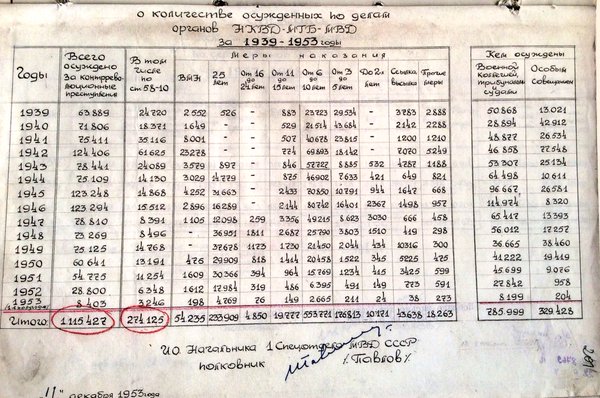 о количестве осужденных по делам
органов НКВД-МГБ-МВД
за 1939-1953 годы
Годы Всего осуждено за контррево-люционные преступления В том числе по ст 58-10 Меры наказания Кем осуждены
ВМН 25 лет От 16 до 24 лет От 11 до 15 лет От 6 до 10 лет От 3 до 5 лет До 2х лет Ссылка высылка Прочие меры Военной коллегией, трибуналами, судами Особым совещанием
1939 63.889 24.720 2.552 526 - 883 23.721 29.534 - 3783 2.888 50.868 13.021
1940 71.806 18.371 1649 - - 529 21.514 43.684 - 2142 2288 28.894 42.912
1941 75.411 35.116 8.001 - - 507 40.678 23.815 - 1200 1210 48.877 26.534
1942 124.406 61.625 23278 - - 774 69.893 18.142 - 7070 5.249 46.858 77.548
1943 78.441 24.089 3.579 897 - 846 57.727 8.885 532 4.787 1.188 53.307 25.134
1944 75.109 14.130 3.029 14.779 - 875 46.902 7.633 421 649 821 64.498 10.611
1945 123.248 14.868 4.252 31.663 - 2.433 70.850 10.791 944 1.647 668 96.667 26.581
1946 123.294 15.512 2.896 16.289 - 2.144 80.742 16.401 2.367 1498 957 114.974 8.320
1947 78.810 8.391 1.105 12.098 259 3.356 49.215 8.623 3.030 666 458 65.417 13.393
1948 73.269 8.496 - 36.951 1811 2.687 25.790 3.803 1.510 419 298 56.012 17.257
1949 75.125 14.768 - 37.678 1173 1.730 21.450 2.044 434 10.316 300 36.665 38.460
1950 60.641 13.191 475 29.909 818 1.414 20.458 1.522 345 5.225 475 41.222 19.419
1951 54.775 11.254 1.609 30.366 394 964 15.769 1.234 415 3.425 599 45.699 9.076
1952 28.800 6.348 1.612 17.984 319 486 6.395 491 149 773 591 27.842 958
1953 8.403 3.246 198 4.769 76 149 2.665 211 24 38 273 8.199 204
Итого 1.115.427 274.125 54.235 233.909 4.850 19.777 553.721 176.813 10.171 43.638 18.263 785.999 329.428
И.О. Начальника 1 Спецотдела МВД СССР
полковник /Павлов/
"11" декабря 1953 года